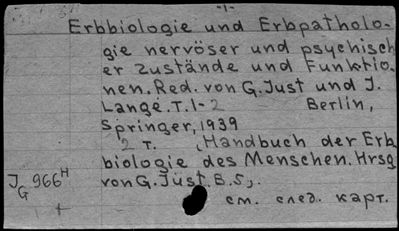 -1-
Erbbiologie und Erbpatholo-
gie nervöser und psychisch
er Zustände und Funktio-
nen. Red. von G. Just und J.
Lange. T. 1-2 Berlin,
Springer, 1939
2 т. (Handbuch der Erb
biologie des Menschen. Hrsg
von G. Just. B. 5).
J 966 H
G
+
см. след. карт.